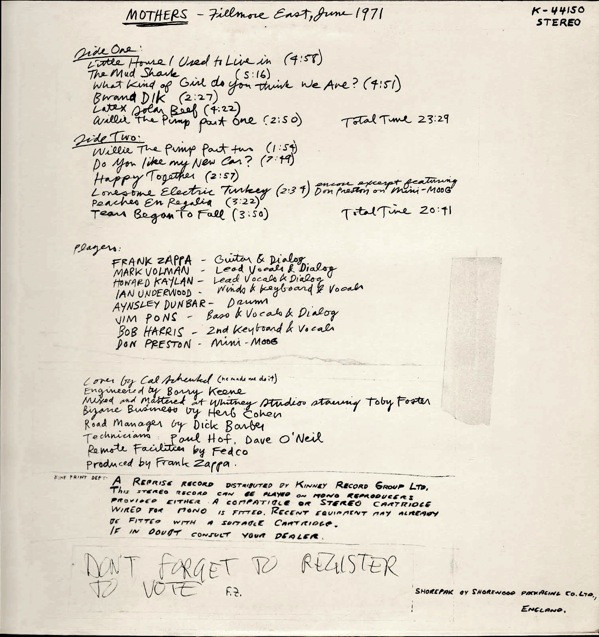 MOTHERS - Fillmore East, June 1971
K-44150
STEREO
Side One:
Little House I Used to Live in (4:58)
The Mud Shark (5:16)
What Kind of Girl do you think we Are? (4:51)
Bwana Dik (2:27)
Latex Solar Beef (4:22)
Willie The Pimp Part One (2:50) Total Time 23:29
Side Two:
Willie The Pimp Part two (1:54)
Do You like my New Car? (7:49)
Happy Together (2:57)
Lonesome Electric Turkey (2:34) encore excerpt featuring Don Preston on Mini-MOOG
Peaches En Regalia (3:22)
Tears Began To Fall (3:50) Total Time 20:41
Players:
FRANK ZAPPA - Guitar & Dialog
MARK VOLMAN - Lead Vocals & Dialog
HOWARD KAYLAN - Lead Vocals & Dialog
IAN UNDERWOOD - Winds & Keyboard & Vocals
AYNSLEY DUNBAR - Drums
JIM PONS - Bass & Vocals & Dialog
BOB HARRIS - 2nd Keyboard & Vocals
DON PRESTON - Mini-MOOG
Cover by Cal Schenkel (he made me do it)
Engineered by Barry Keene
Mixed and Mastered at Whitney Studios starring Toby Foster
Bizarre Business by Herb Cohen
Road Manager by Dick Barber
Technicians Paul Hof, Dave O'Neil
Remote Facilities by Fedco
Produced by Frank Zappa.
FINE PRINT DEPT:
A REPRISE RECORD DISTRIBUTED BY KINNEY RECORD GROUP LTD.
THIS STEREO RECORD CAN BE PLAYED ON MONO REPRODUCERS
PROVIDED EITHER A COMPATIBLE OR STEREO CARTRIDGE
WIRED FOR MONO IS FITTED. RECENT EQUIPMENT MAY ALREADY
BE FITTED WITH A SUITABLE CARTRIDGE.
IF IN DOUBT CONSULT YOUR DEALER.
DON'T FORGET TO REGISTER
TO VOTE F.Z.
SHOREPAK BY SHOREWOOD PACKAGING CO. LTD.,
ENGLAND.